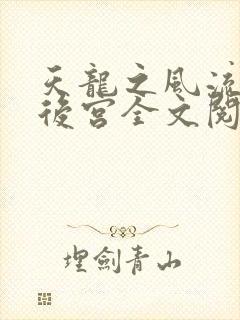 天龍之風流
後宮全文閱
埋劍青山